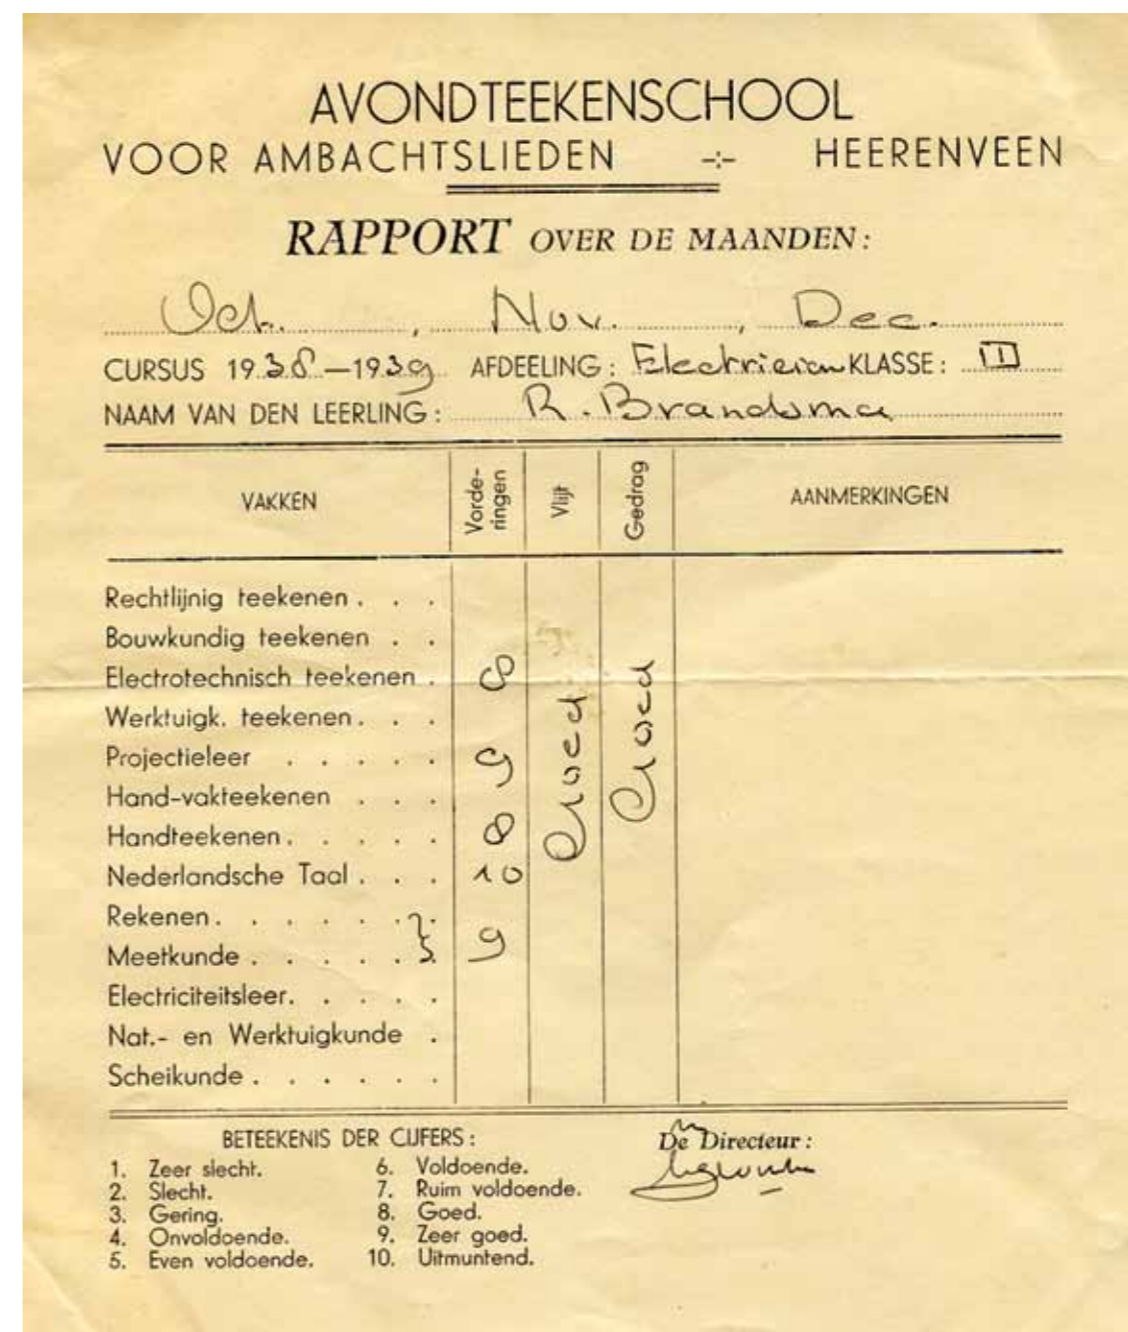 AVONDTEEKENSCHOOL
VOOR AMBACHTSLIEDEN -:- HEERENVEEN
RAPPORT OVER DE MAANDEN:
Oct. , Nov. , Dec.
CURSUS 1938–1939 AFDEELING: Electricien KLASSE: II
NAAM VAN DEN LEERLING: R. Brandsma
VAKKEN Vorde-ringen Vlijt Gedrag AANMERKINGEN
Rechtlijnig teekenen . . .
Bouwkundig teekenen . .
Electrotechnisch teekenen . 8
Werktuigk. teekenen . . .
Projectieleer . . . . . 9
Hand-vakteekenen . . .
Handteekenen . . . . . 8
Nederlandsche Taal . . . 10
Rekenen . . . . . .
Meetkunde . . . . . 9
Electriciteitsleer. . . . .
Nat.- en Werktuigkunde .
Scheikunde . . . . . .
Goed
Goed
BETEEKENIS DER CIJFERS:
1. Zeer slecht.
2. Slecht.
3. Gering.
4. Onvoldoende.
5. Even voldoende.
6. Voldoende.
7. Ruim voldoende.
8. Goed.
9. Zeer goed.
10. Uitmuntend.
De Directeur: